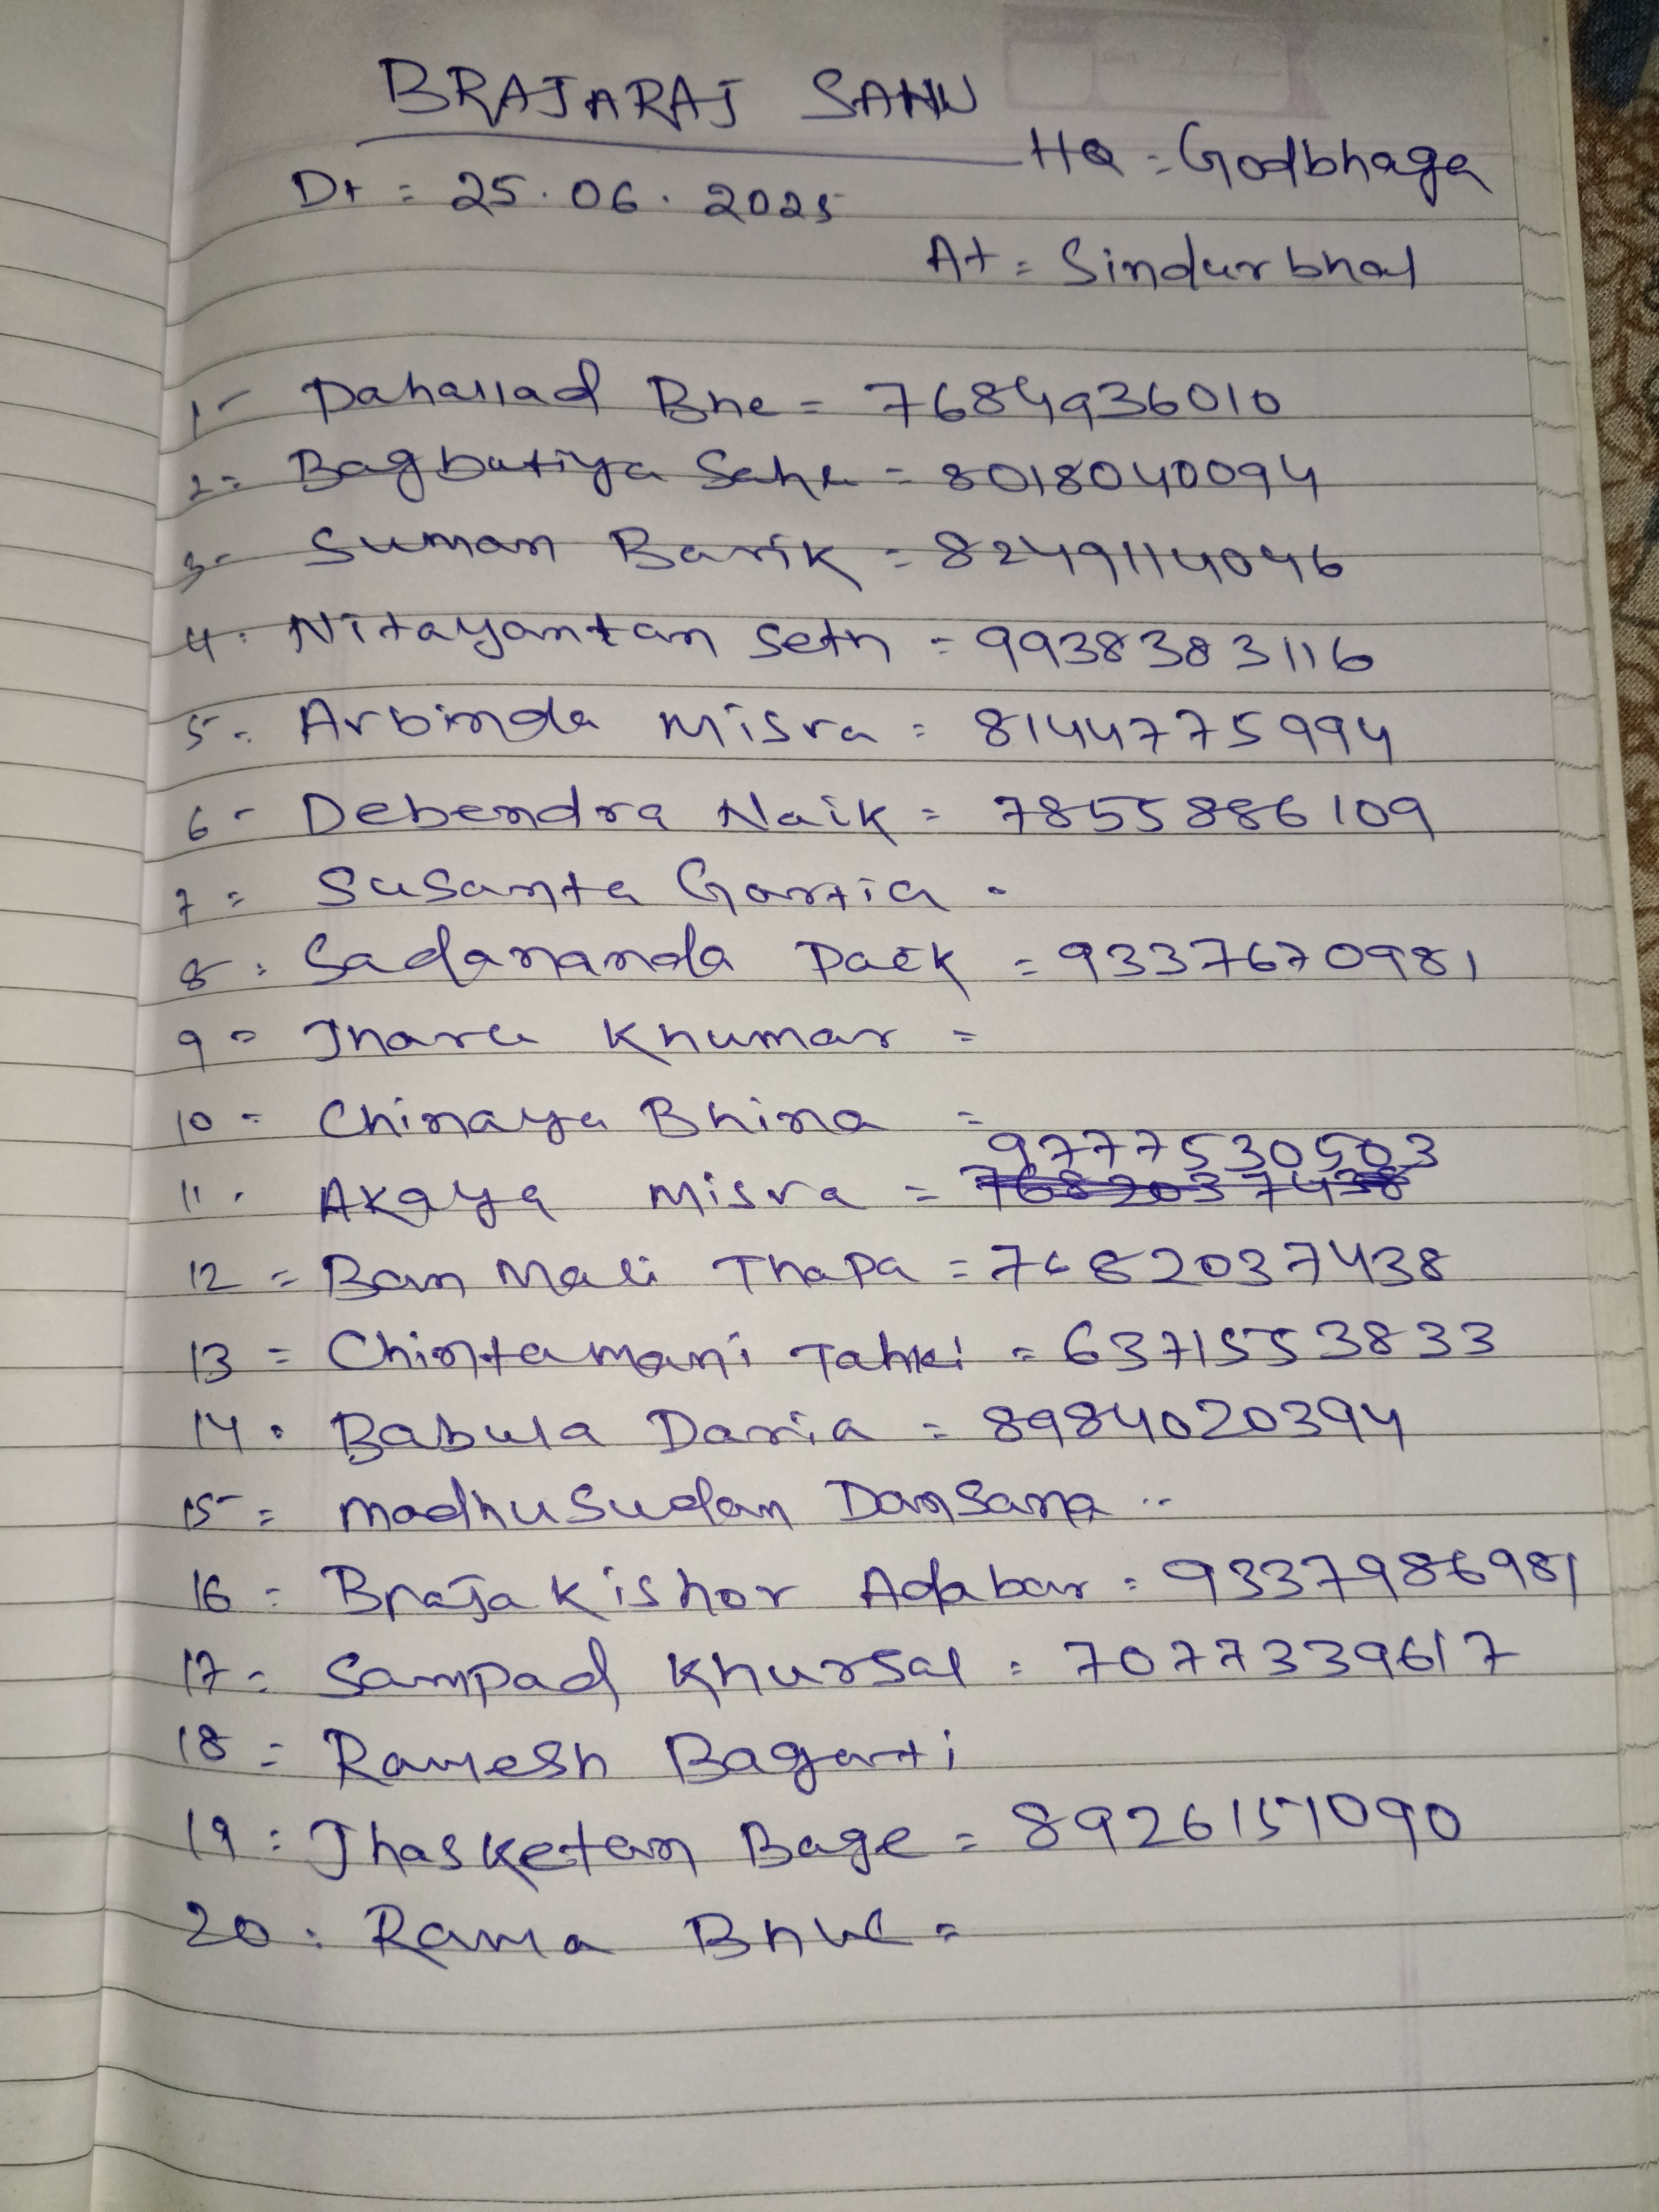 BRAJARAJ SAHU
HQ = Godbhaga
Dt = 25.06.2025
At = Sindurbhal
1- Dahallad Bhe = 7684936010
2= Bagbutiya Sahu = 8018040094
3- Suman Barik = 8249114046
4. Nitayantan Seth = 9938383116
5- Arbinda Misra = 8144775994
6- Debendra Naik = 7855886109
7= Susanta Gartia -
8= Sadananda Paek = 9337670981
9= Jharu Khumar =
10= Chinaya Bhina =
9777530503
11. Akaya Misra = 7682037438
12= Ban Mali Thapa = 7682037438
13= Chintamani Tahki = 6371553833
14. Babula Daria = 8984020394
15= Madhusudan Dansana ..
16= Braja Kishor Adabar = 9337986981
17= Sampad Khursal = 7077339617
18= Ramesh Bagarti
19= Jhasketan Bage = 8926151090
20. Rama =